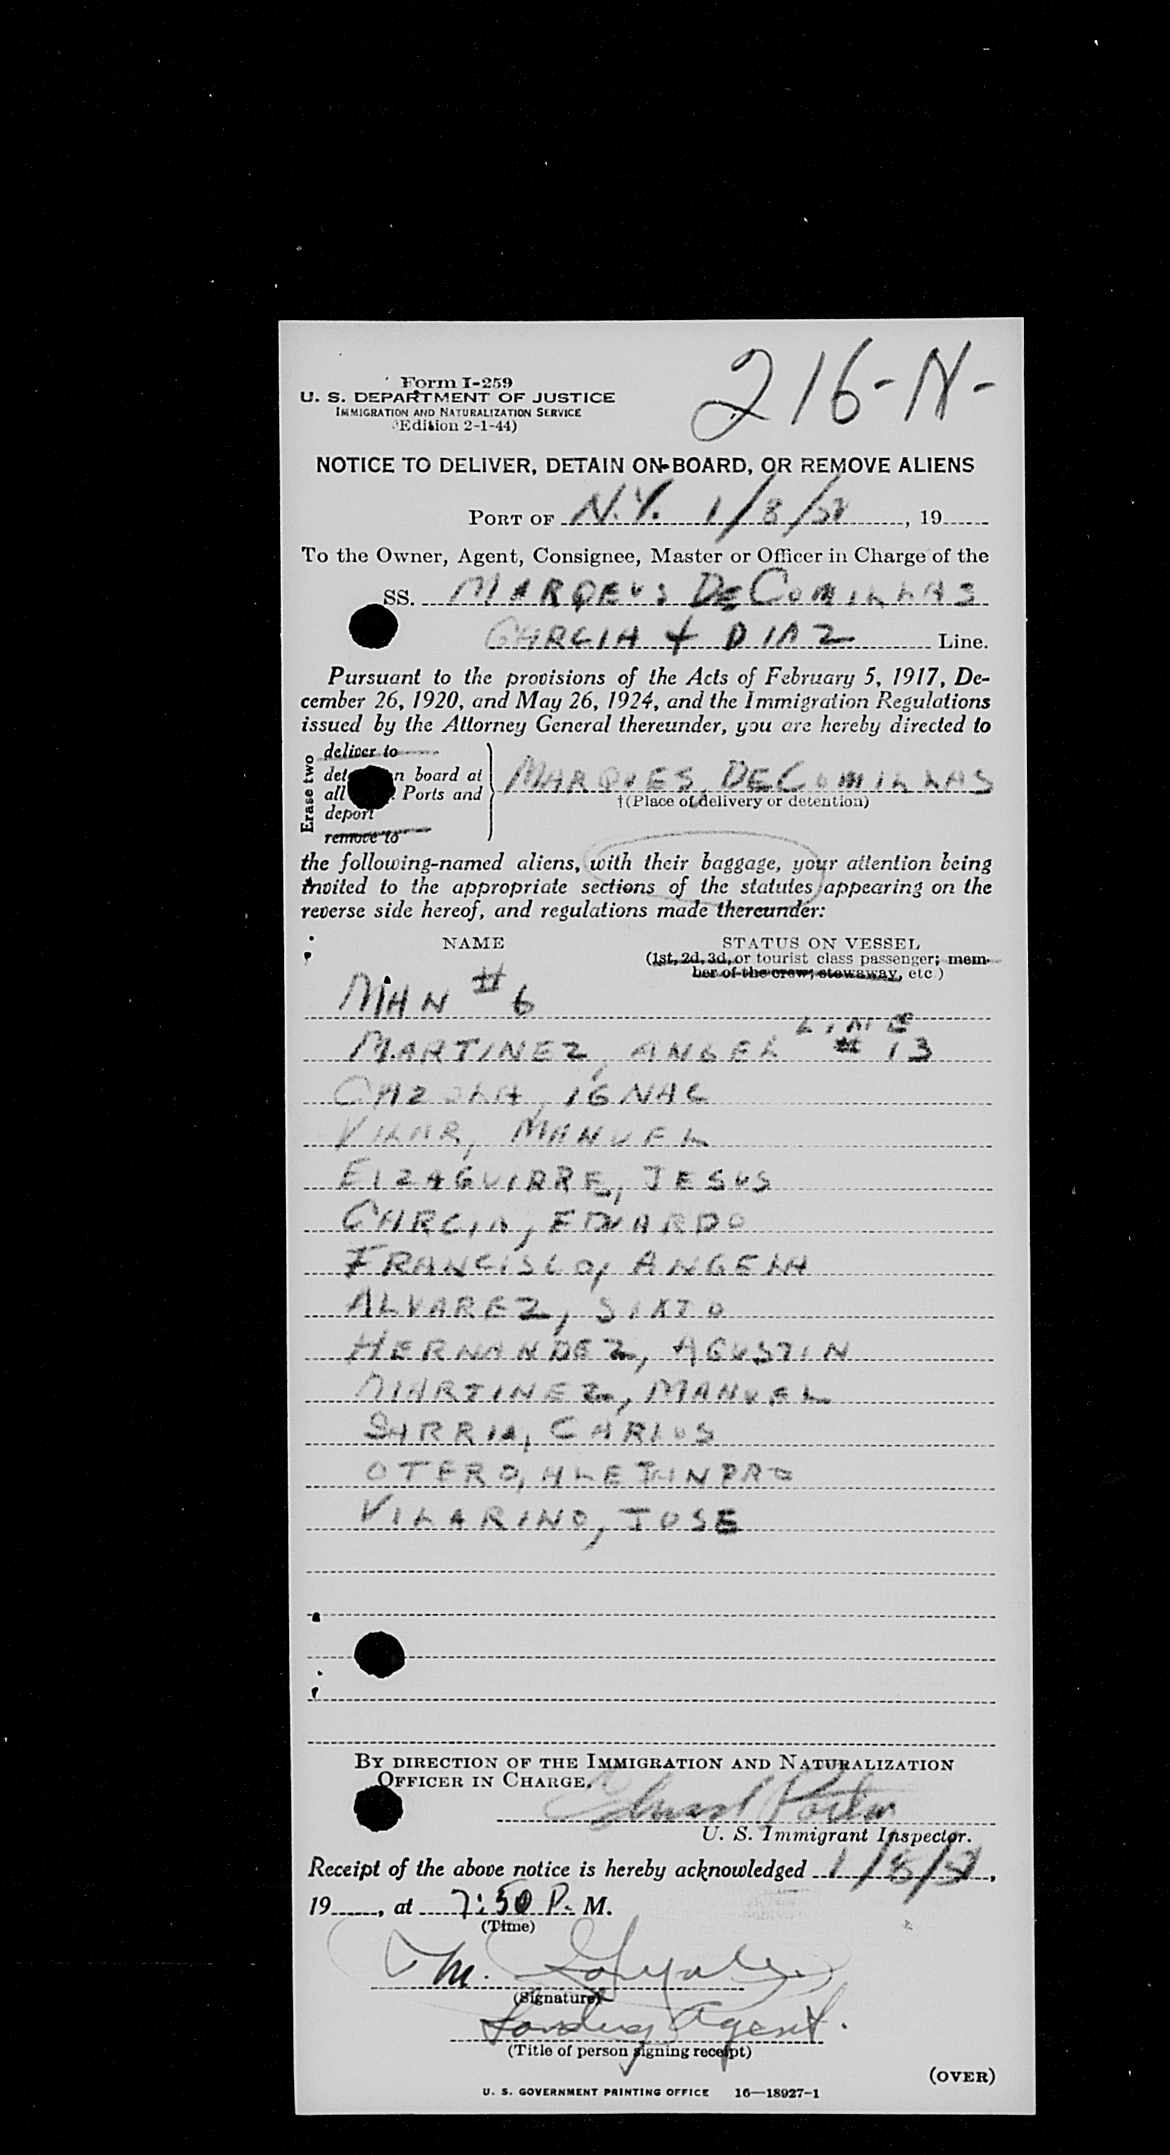 216-N-
Form I-259
U. S. DEPARTMENT OF JUSTICE
IMMIGRATION AND NATURALIZATION SERVICE
(Edition 2-1-44)
NOTICE TO DELIVER, DETAIN ON BOARD, OR REMOVE ALIENS
PORT OF N.Y. 1/8/51, 19
To the Owner, Agent, Consignee, Master or Officer in Charge of the
SS. MARQEUS DECOMILLAS
GARCIA & DIAZ Line.
Pursuant to the provisions of the Acts of February 5, 1917, De-
cember 26, 1920, and May 26, 1924, and the Immigration Regulations
issued by the Attorney General thereunder, you are hereby directed to
Erase two
deliver to
det n board at
all Ports and
deport
remove to
MARQUES DECOMILLAS
†(Place of delivery or detention)
the following-named aliens, with their baggage, your attention being
invited to the appropriate sections of the statutes appearing on the
reverse side hereof, and regulations made thereunder:
NAME STATUS ON VESSEL
(1st, 2d, 3d, or tourist class passenger; mem-
ber of the crew; stowaway, etc.)
MAN # 6
MARTINEZ, ANGEL LINE # 13
CAZOLA, IGNAC
VILAR, MANUEL
EIZAGUIRRE, JESUS
GARCIA, EDUARDO
FRANCISCO, ANGELA
ALVAREZ, SIXTO
HERNANDEZ, AGUSTIN
MARTINEZ, MANUEL
SARRIA, CARLOS
OTERO, ALEJANDRO
VILARINO, JOSE
BY DIRECTION OF THE IMMIGRATION AND NATURALIZATION
OFFICER IN CHARGE.
U. S. Immigrant Inspector.
Receipt of the above notice is hereby acknowledged 1/8/51,
19 , at 7:50 P. M.
(Time)
M. Gonzalez
(Signature)
Landing Agent.
(Title of person signing receipt)
(OVER)
U. S. GOVERNMENT PRINTING OFFICE 16—18927-1